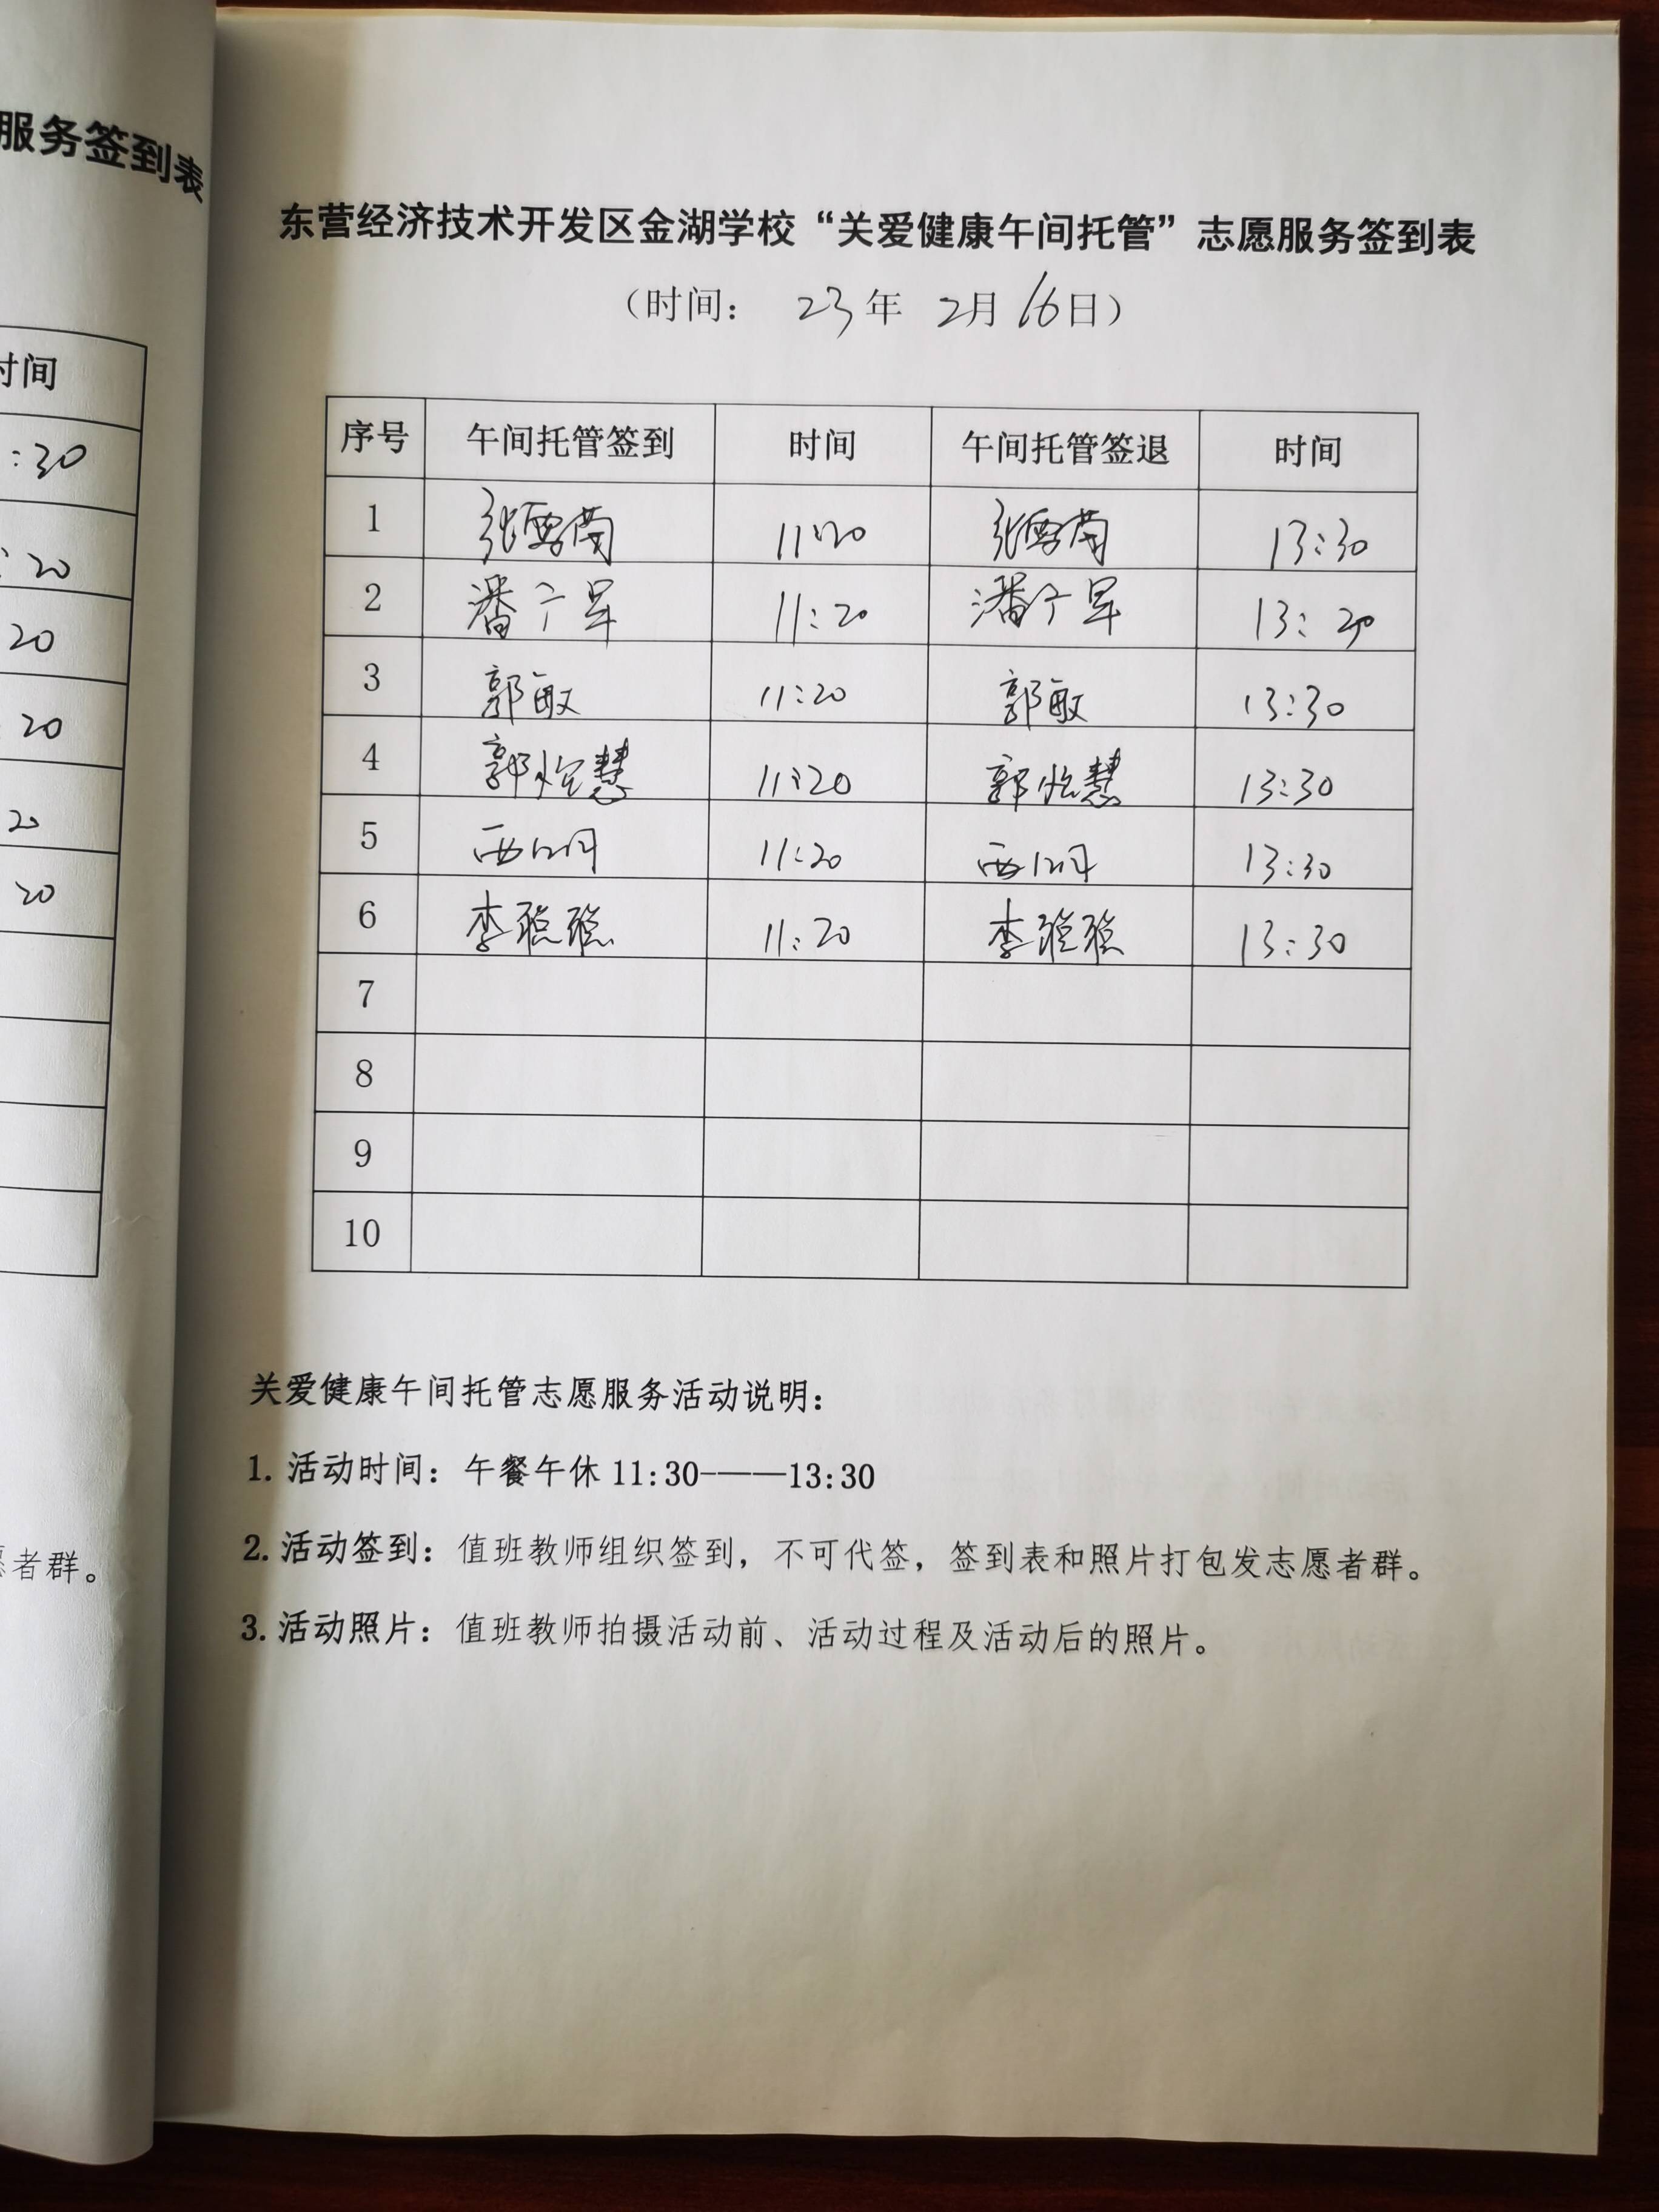 服务签到表
时间
:30
:20
20
20
20
20
者群。
东营经济技术开发区金湖学校“关爱健康午间托管”志愿服务签到表
（时间： 23年 2月16日）
序号 午间托管签到 时间 午间托管签退 时间
1 张雪南 11:20 张雪南 13:30
2 潘广军 11:20 潘广军 13:20
3 郭敏 11:20 郭敏 13:30
4 郭 慧 11:20 郭 慧 13:30
5 西 11:20 西 13:30
6 李聪聪 11:20 李聪聪 13:30
7
8
9
10
关爱健康午间托管志愿服务活动说明：
1. 活动时间：午餐午休 11:30-——13:30
2. 活动签到：值班教师组织签到，不可代签，签到表和照片打包发志愿者群。
3. 活动照片：值班教师拍摄活动前、活动过程及活动后的照片。